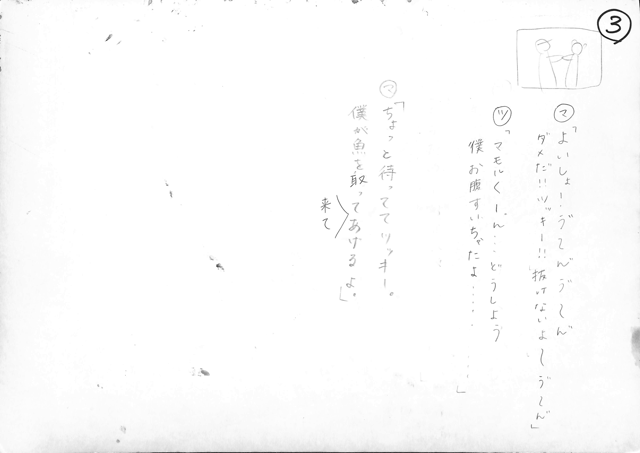 ③
マ「よいしょー!ゔ〜んゔ〜ん
ダメだ!!ツッキー!!抜けないよ〜ゔ〜ん」
ツ「マモルくーん…どうしよう
僕お腹すいちゃたよ……… 」
マ「ちょっと待っててツッキー。
僕が魚を取ってあげるよ。」
来て